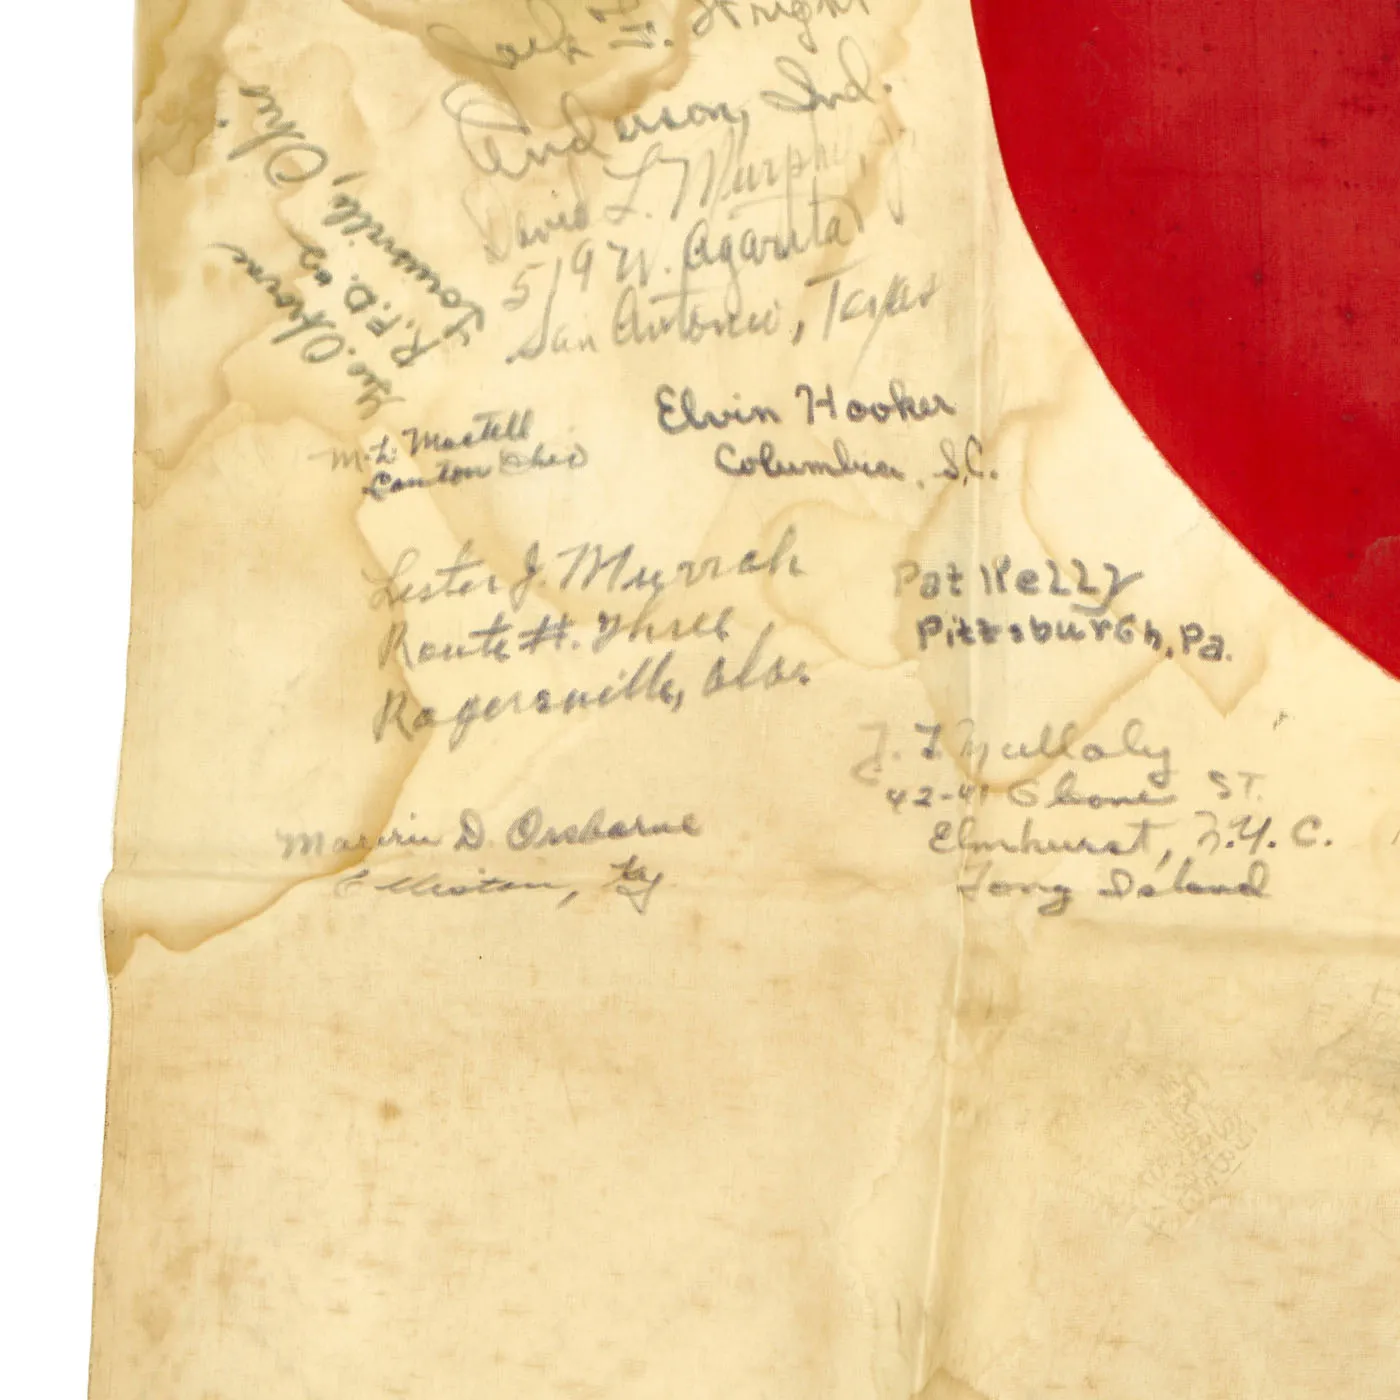 Jack L. Wright
Anderson, Ind.
David L. Murphy, Jr.
519 W. Agarita
San Antonio, Texas
Geo.
R.F.D. #2
Lowellville, Ohio
Elvin Hooker
Columbia, S.C.
M. L. Martell
Canton Ohio
Lester J. Murrah
Route #. Three
Rogersville, Ala.
Pat Kelly
Pittsburgh, Pa.
J. I. Mullaly
42-41 ST.
Elmhurst, N.Y.C.
Long Island
D. Osborne
Elliston, Ky